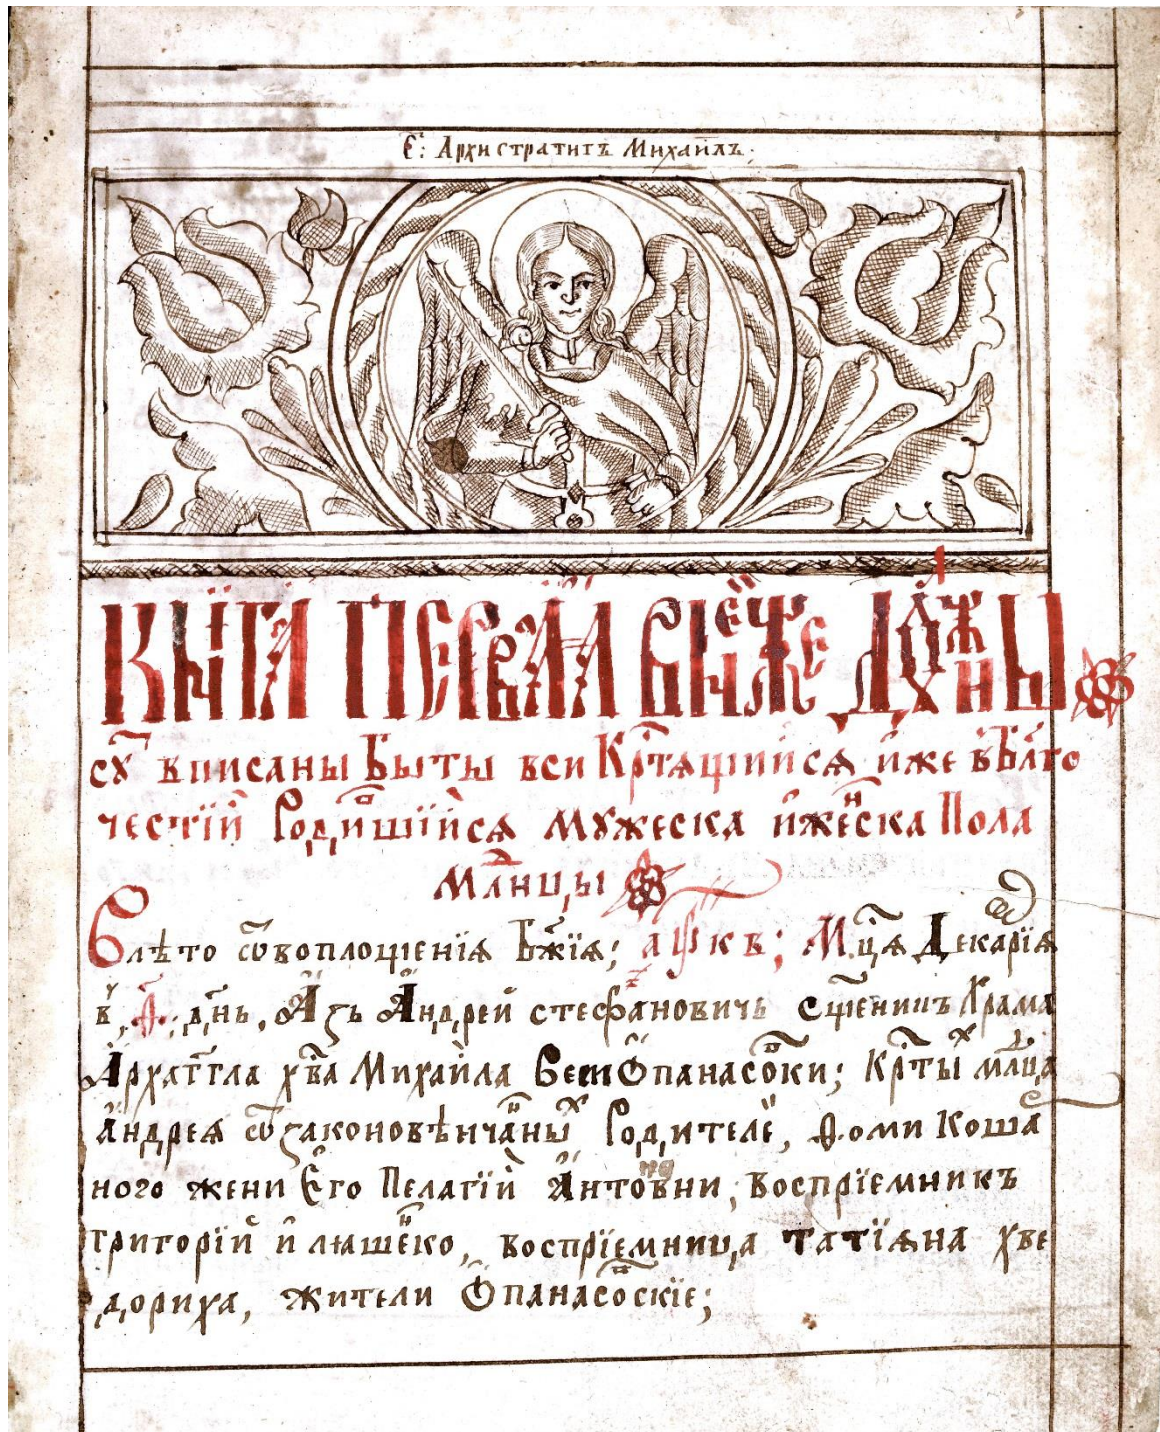 С: Архистратигъ Михаилъ:
Книга первая в нейже должны
сꙋть вписаны быты вси крⷭ҇тящиися иже в блг҃о
честїи родишїися мꙋжеска и женска пола
млⷣнцы
В лѣто ѿ воплощенїя Бж҃їя; а҂ѱкв; Мцⷭ҇а Декаврїя
в, д, днь, Азъ Андрей Стефановичъ сщ҃еникъ храма
Архагг҃ла хв҃а Михаила веси Ѻпанасовки; крⷭ҇тыхъ млⷣнца
Андрея ѿ законовѣнчанныхъ родителей, Ѳоми Коша
ного жени его Пелагїи Антоновни; воспрїемникъ
григорїй илляшенко, воспрїемница татїяна хве
дориха, жители Ѻпанасовскїе;